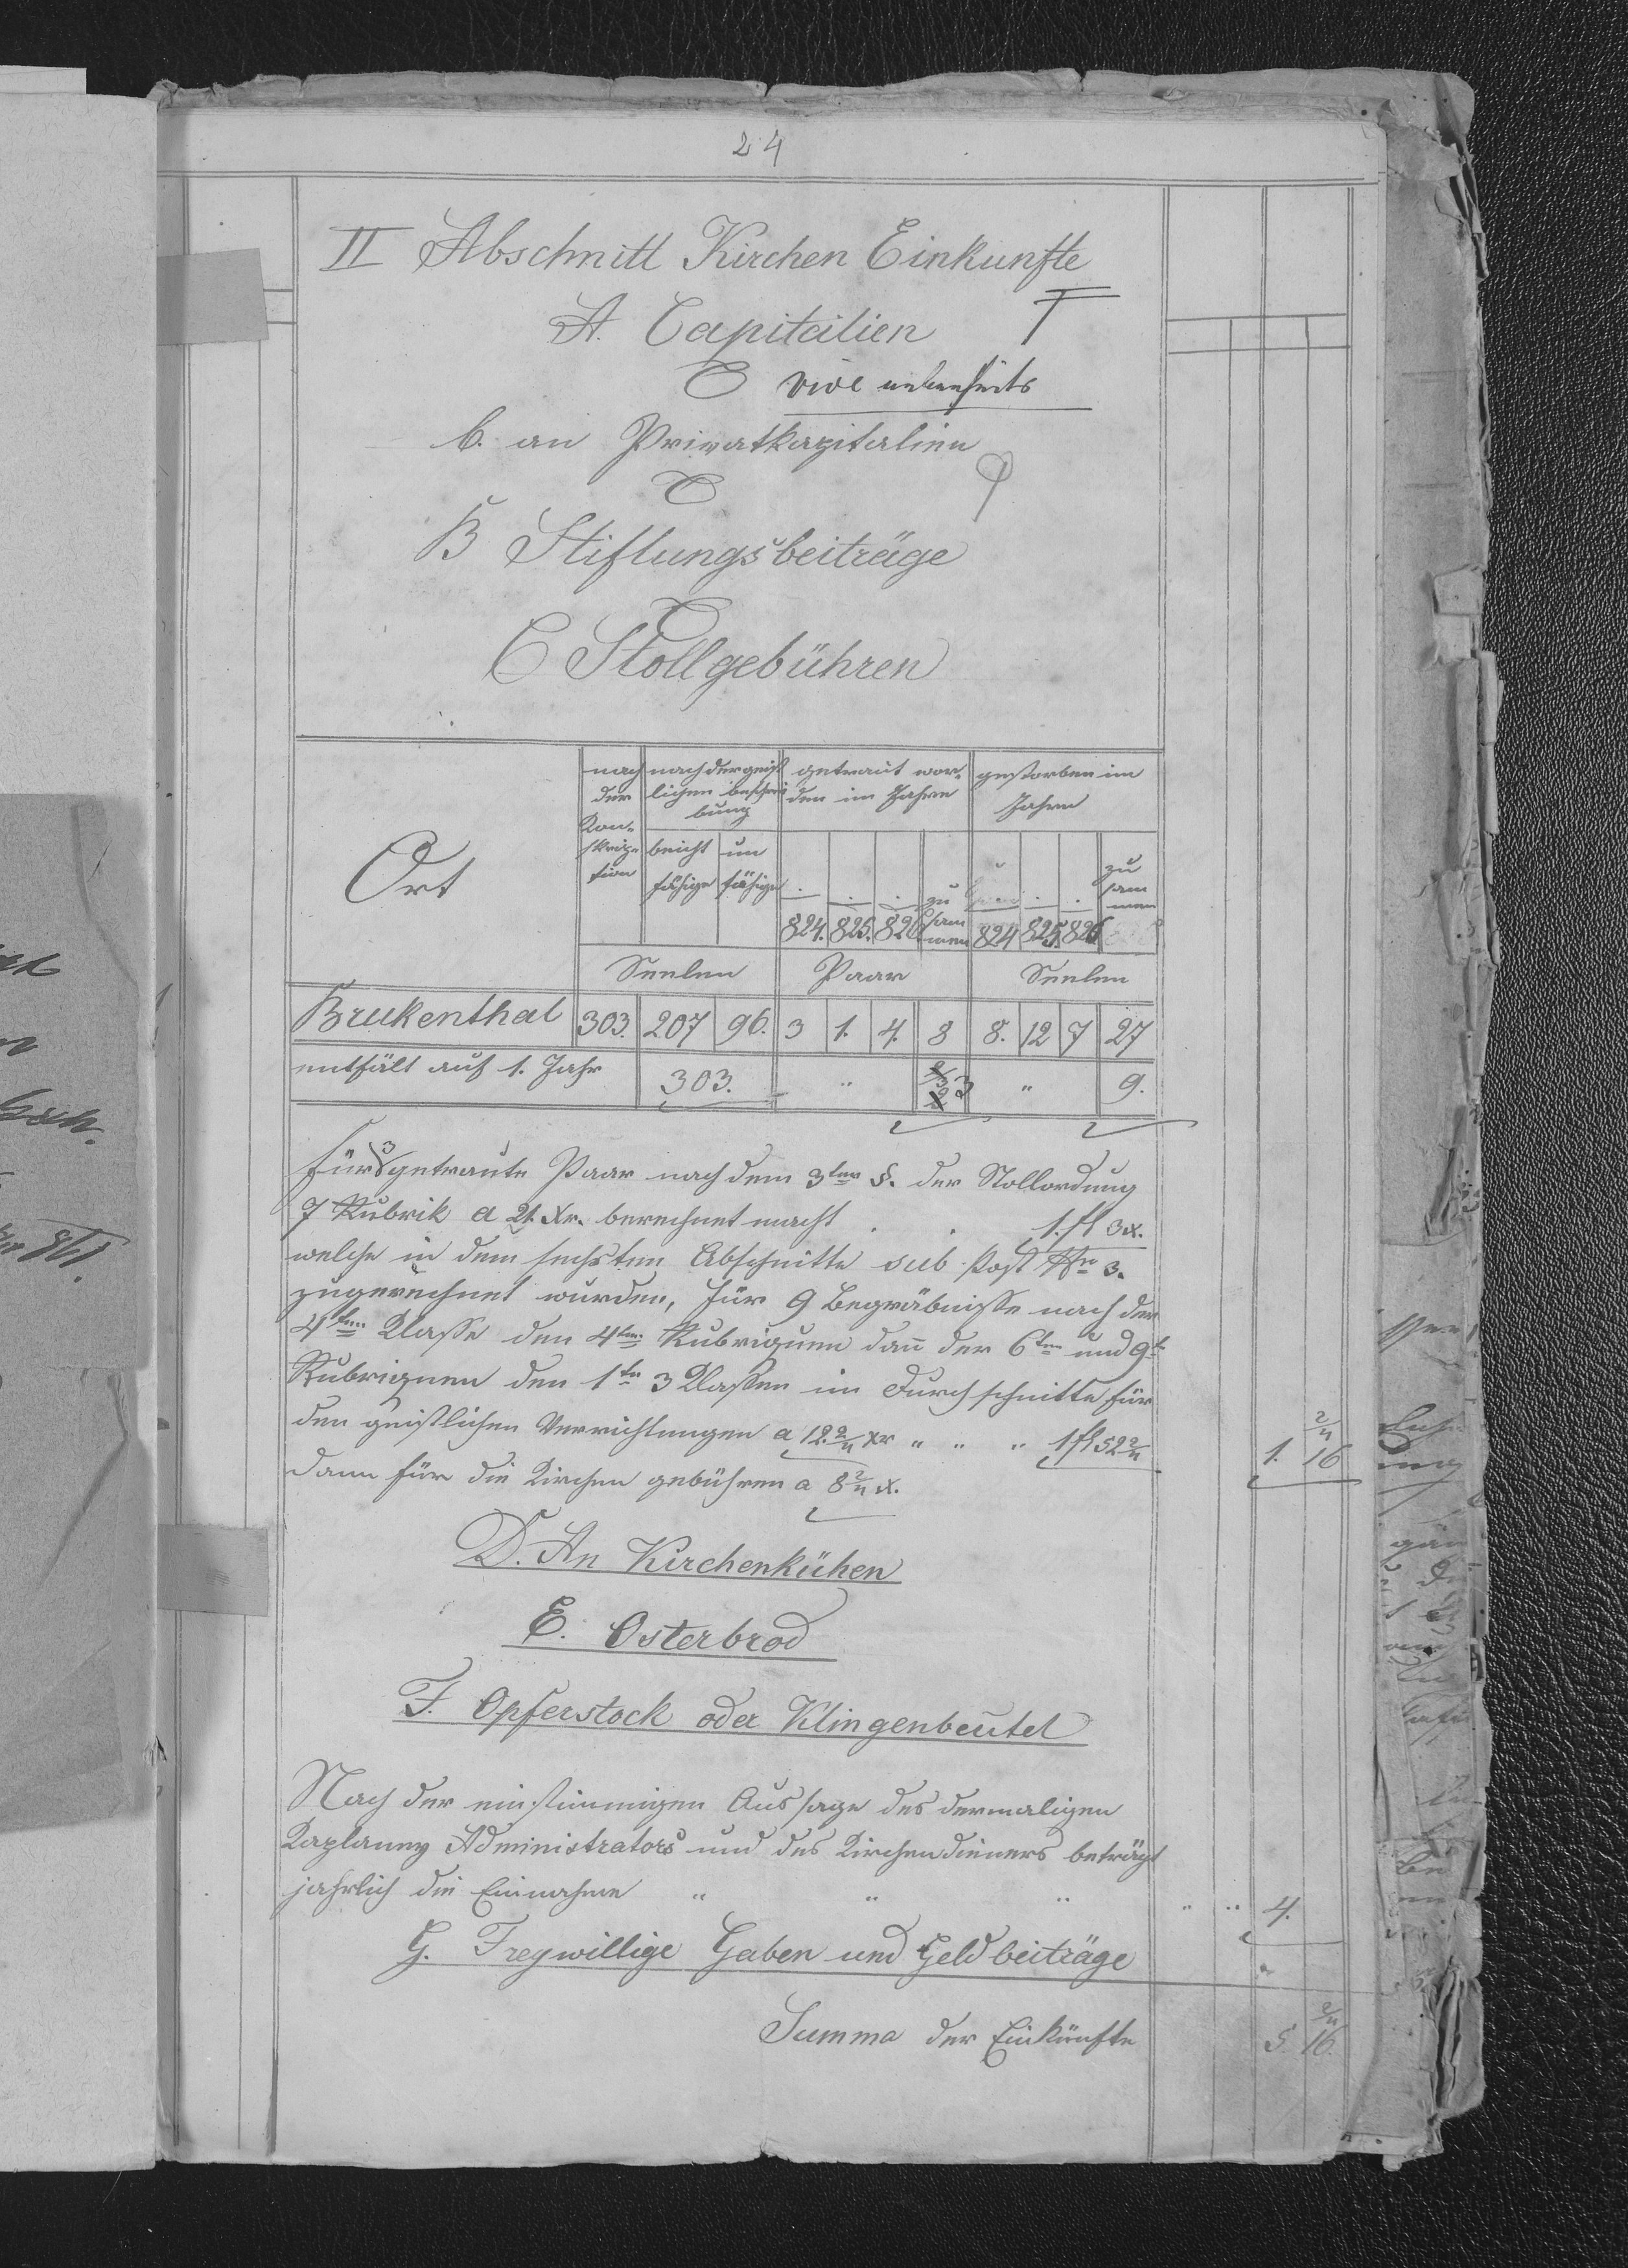 24
II Abschnitt Kirchen Einkunfte
A. Capitalien
vide nebenseits
b. an Privatkapitalien
B Stiftungsbeiträge
C Stollgebühren
Ort
nach der Konskripztion
nach der geistlichen beschreibung
getraut worden im Jahre
gestorben im Jahre
beicht fähige
un fähige
824. 825. 826 zusammen
824 825. 826 zusammen
Seelen Paar Seelen
Brukenthal 303. 207 96. 3 1. 4. 8 8. 12 7 27
entfält auf 1. Jahr 303. " 3 " 9.
Für 3 getraute Paar nach dem 3ten §. der Stollordnug
7 Rubrik a 21. Xr. berechnet macht . . 1. fl 3x.
welche in dem sechsten Abschnitte sub Post Nro 3.
zugerechnet wurden, Für 9 Begräbnisse nach der
4ten Klasse den 4ten Rubriquen dan̄ der 6ten und 9t
Rubriquen den 1te 3 Klassen im Durchschnitte für
den geistlichen Verrichtungen a 12. 2/4 Xr " " " 1 fl 52 2/4
dann für die Kirchen gebühren a 8 2/4 x. 1. 16 2/4
D. An Kirchenkühen
E. Osterbrod
F. Opferstock oder Klingenbeutel
Nach der einstimmigen Aussage des dermaligen
Kaplaney Administrators und des Kirchendieners beträgt
jahrlich die Einnahme " " " " " 4.
G. Freywillige Gaben und Geldbeiträge
Summa der Einkünfte 5 16 2/4